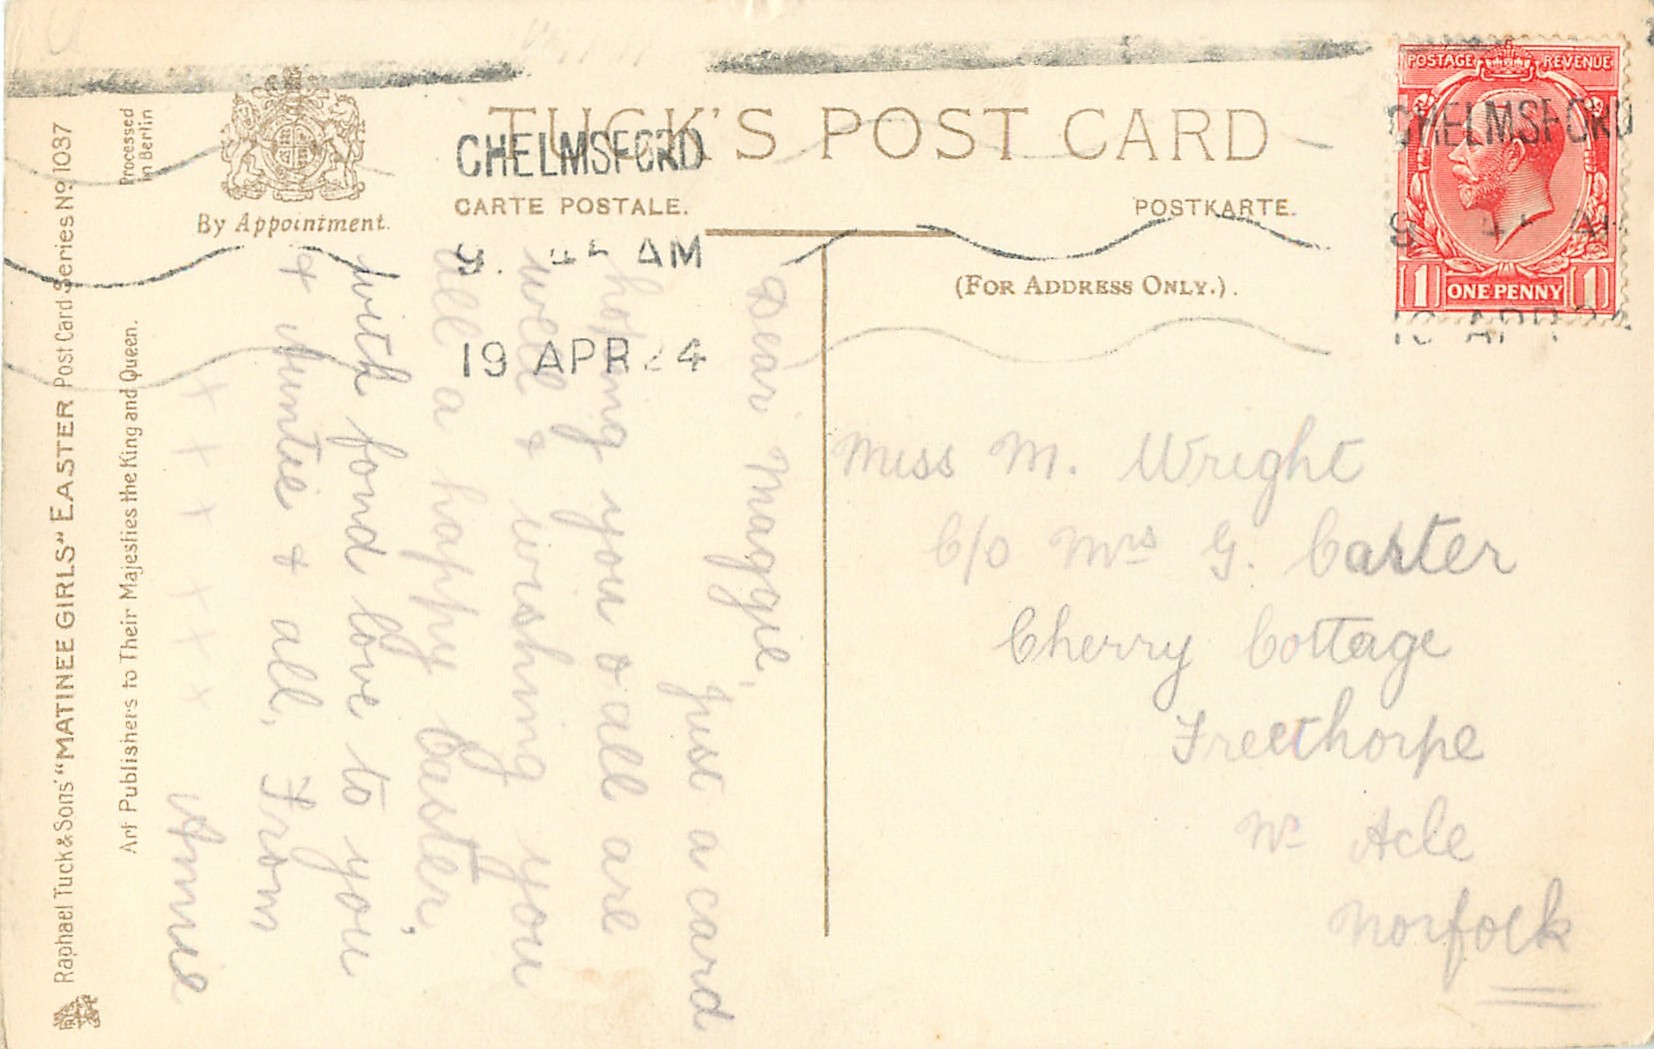 TUCK'S POST CARD
CARTE POSTALE.
POSTKARTE.
(FOR ADDRESS ONLY.)
By Appointment.
Processed
in Berlin
Raphael Tuck & Sons' "MATINEE GIRLS" EASTER Post Card Series No 1037
Art Publishers to Their Majesties the King and Queen.
CHELMSFORD
AM
19 APR 24
POSTAGE REVENUE
CHELMSFORD
1 ONE PENNY 1
Dear Maggie,
Just a card
hoping you & all are
well & wishing you
all a happy Easter,
with fond love to you
& Auntie & all, From
Annie
x x x x x x
Miss M. Wright
C/o Mrs G. Carter
Cherry Cottage
Freethorpe
Nr Acle
Norfolk